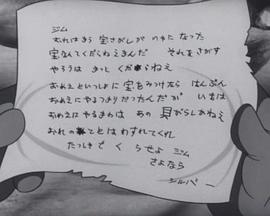 ジム
おれはもう 宝さがしが いやになった
宝なんてくだらねえもんだ それをさがす
やろうは もっと くだらねえ
おめえといっしょに 宝をみつけたら はんぶん
おめえにやるつもりだったんだが いまは
おめえにやるものは あの 貝がらしかねえ
おれのことはわすれてくれ
たっしゃで くらせよ ジム
さよなら
シルバー